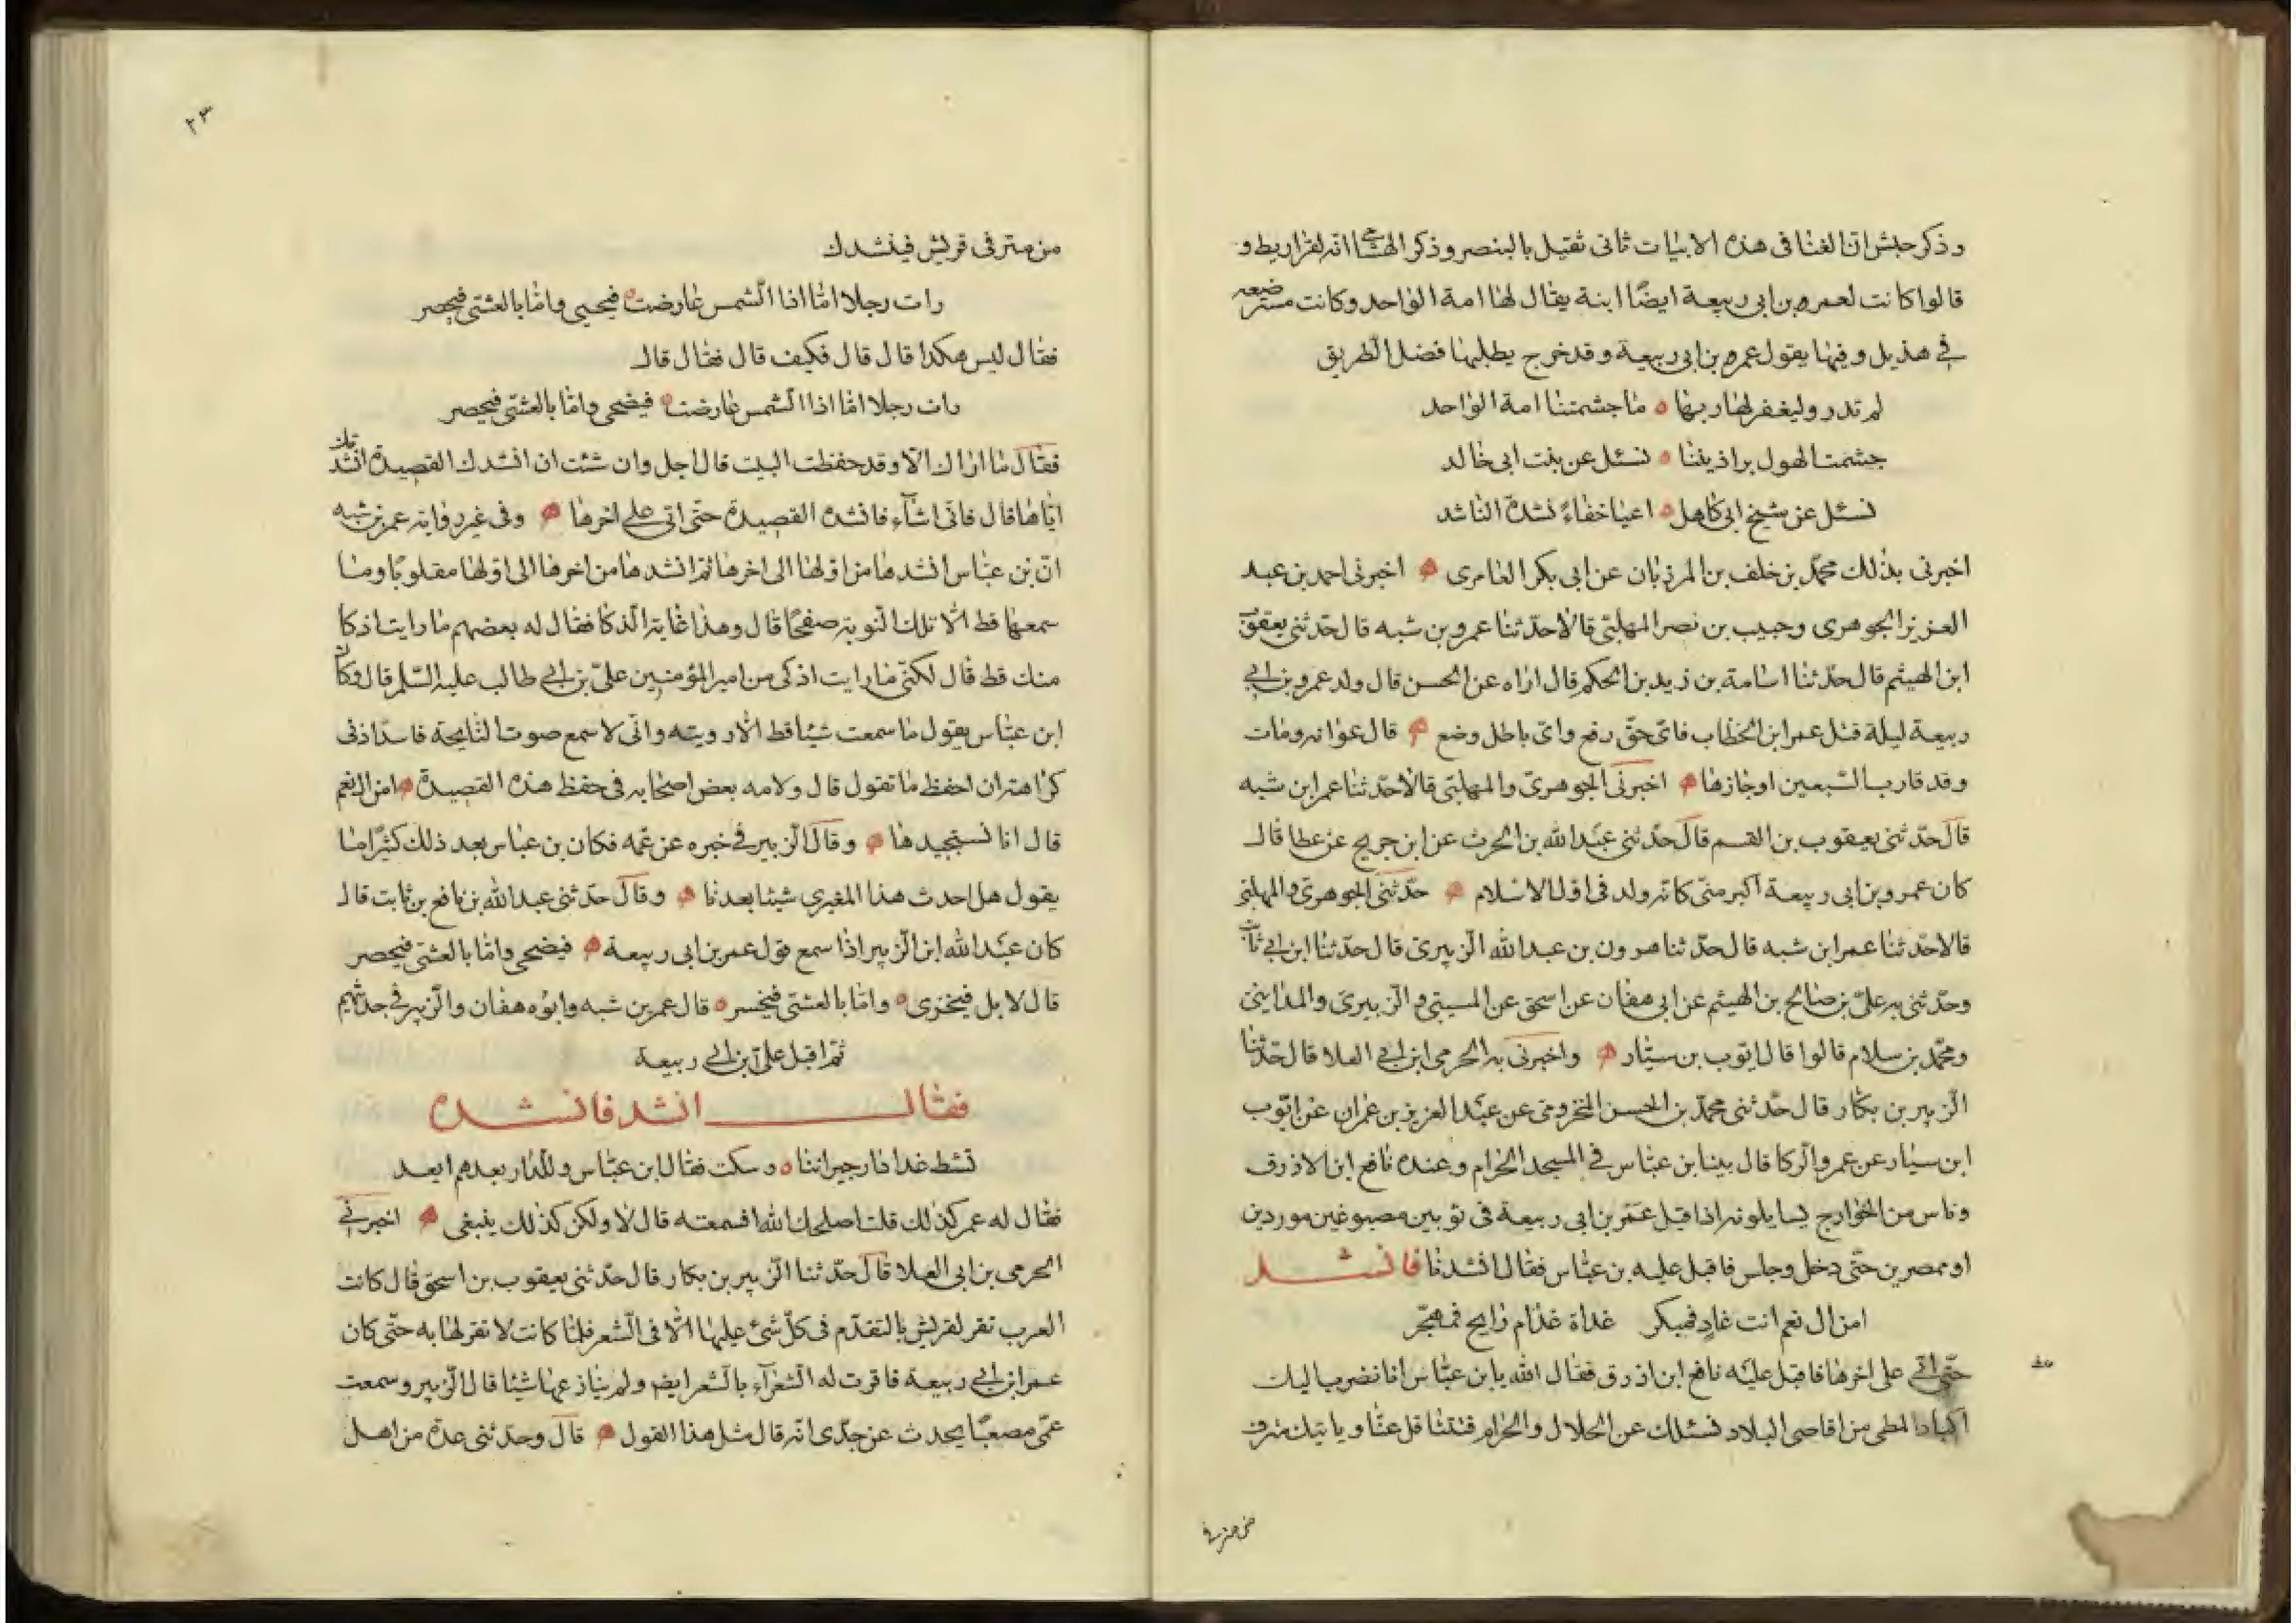 وذكر حبش ان الغنا فى هذه الابيات ثانى ثقيل بالبنصر وذكر الهشامى انه لقراريط و
قالوا كانت لعمرو بن ابى ربيعة ايضًا ابنة يقال لها امة الواحد وكانت مسترضعه
فى هذيل وفيها يقول عمرو بن ابى ربيعة وقد خرج يطلبها فضل الطريق
لم تدر وليغفر لها ربها ه ما جشمتنا امة الواحد
جشمت الهول براذيننا ه نسئل عن بنت ابى خالد
نسئل عن شيخ ابى كاهل ه اعيا خفاءً نشدة الناشد
اخبرنى بذلك محمّد بن خلف بن المرزبان عن ابى بكر العامرى ه اخبرنى احمد بن عبد
العزيز الجوهرى وحبيب بن نصر المهلبى قالا حدّثنا عمرو بن شبه قال حدّثنى يعقوب
ابن الهيثم قال حدّثنا اسامة بن زيد بن الحكم قال اراه عن الحسن قال ولد عمرو بن ابى
ربيعة ليلة قتل عمر ابن الخطاب فاى حقّ رفع واىّ باطل وضع ه قال عوانه ومات
وقد قارب السّبعين اوجازها ه اخبرنى الجوهرىّ والمهلبّى قالا حدّثنا عمر ابن شبه
قال حدّثنى يعقوب بن القسم قال حدّثنى عبد الله بن الحرث عن ابن جريج عن عطا قال
كان عمرو بن ابى ربيعة اكبر منّى كانه ولد فى اوّل الاسلام ه حدّثنى الجوهرى والمهلبى
قالا حدّثنا عمر ابن شبه قال حدّثنا هرون بن عبد الله الزّبيرى قال حدّثنا ابن ابى ثابت
وحدّثنى به علىّ بن صالح بن الهيثم عن ابى هفان عن اسحق عن المسيبّى والزّبيرى والمداينى
ومحمّد بن سلام قالوا قال ايّوب بن سيّار ه واخبرنى به الحرمى ابن ابى العلا قال حدّثنا
الزّبير بن بكّار قال حدّثنى محمّد بن الحسن المخزومى عن عبد العزيز بن عمران عن ايّوب
ابن سيّار عن عمر والركا قال بينا ابن عبّاس فى المسجد الحرام وعنده نافع ابن الازرق
وناس من الخوارج يسايلونه اذ اقبل عمر بن ابى ربيعة فى ثوبين مصبوغين موردين
او ممصرين حتّى دخل وجلس فاقبل عليه بن عبّاس فقال انشدنا فانشد
امن ال نعم انت غادٍ فمبكر غداة غدام رايح فمهجّر
حتّى اتى على اخرها فاقبل عليه نافع ابن ازرق فقال الله يا بن عبّاس انا نضرب اليك
اكباد المطى من اقاصى البلاد نسئلك عن الحلال والحرام فتثاقل عنّا وياتيك مترف
من مترف
٢٣
من مترفى قريش فينشدك
رات رجلا امّا اذا الشمس عارضت ه فيحيى وامّا بالعشّى فيحصر
فقال ليس هكذا قال قال فكيف قال فقال قال
رات رجلا امّا اذا الشمس عارضت ه فيضحى وامّا بالعشّى فيحصر
فقال ما اراك الّا وقد حفظت البيت قال اجل وان شئت ان انشدك القصيدة انشدتك
ايّاها قال فانّى اشآء فانشده القصيدة حتّى اتى على اخرها ه وفى غير روايه عمر بن شبه
انّ بن عبّاس انشدها من اوّلها الى اخرها ثمّ انشدها من اخرها الى اوّلها مقلوبًا وما
سمعها قط الّا تلك النّوبة صفحًا قال وهذا غاية الذكا فقال له بعضهم ما رايت اذكا
منك قط قال لكنّى ما رايت اذكى من امير المؤمنين علىّ بن ابى طالب عليه السّلم قال وكان
ابن عبّاس يقول ما سمعت شيئا قط الّا رويته وانّى لا سمع صوت النّايحة فاسدّ اذنى
كراهة ان احفظ ما تقول قال ولامه بعض اصحابه فى حفظ هذه القصيدة ه امن ال نعم
قال انا نستجيدها ه وقال الزبير فى خبره عن عمّه فكان بن عبّاس بعد ذلك كثيرًا ما
يقول هل احدث هذا المغيرى شيئا بعدنا ه وقال حدّثنى عبد الله بن نافع بن ثابت قال
كان عبد الله ابن الزّبير اذا سمع قول عمر بن ابى ربيعة ه فيضحى وامّا بالعشّى فيحصر
قال لا بل فيخزى ه وامّا بالعشّى فيخسر ه قال عمر بن شبه وابوه هفان والزّبير فى حديثهم
ثمّ اقبل على ابن ابى ربيعة
فقال انشد فانشده
تشط غدا دار جيراننا ه وسكت فقال ابن عبّاس وللدّار بعدهم ابعد
فقال له عمر كذلك قلت اصلحك الله افسمعته قال لا ولكن كذلك ينبغى ه اخبرنى
الحرمى بن ابى العلا قال حدّثنا الزّبير بن بكار قال حدّثنى يعقوب بن اسحق قال كانت
العرب تقر لقريش بالتقدّم فى كلّ شئ عليها الّا فى الشعر فانّها كانت لا تقر لها به حتّى كان
عمر ابن ابى ربيعة فاقرت له الشعرآء بالشعر ايضا ولم ينازعها شيئا قال الزّبير وسمعت
عمّى مصعبًا يحدث عن جدّى انّه قال مثل هذا القول ه قال وحدّثنى عدة من اهل